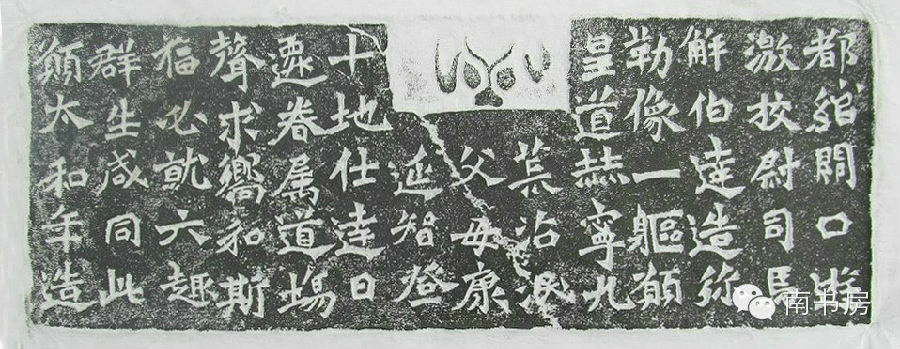 都綰闕口遊
激校尉司馬
解伯達造弥
勒像一軀願
皇道赫寧九
荒沾泯
父母康
延智登
十地仕達日
遷眷属道場
聲求嚮和斯
福必就六趣
群生咸同此
願太和年造
南书房